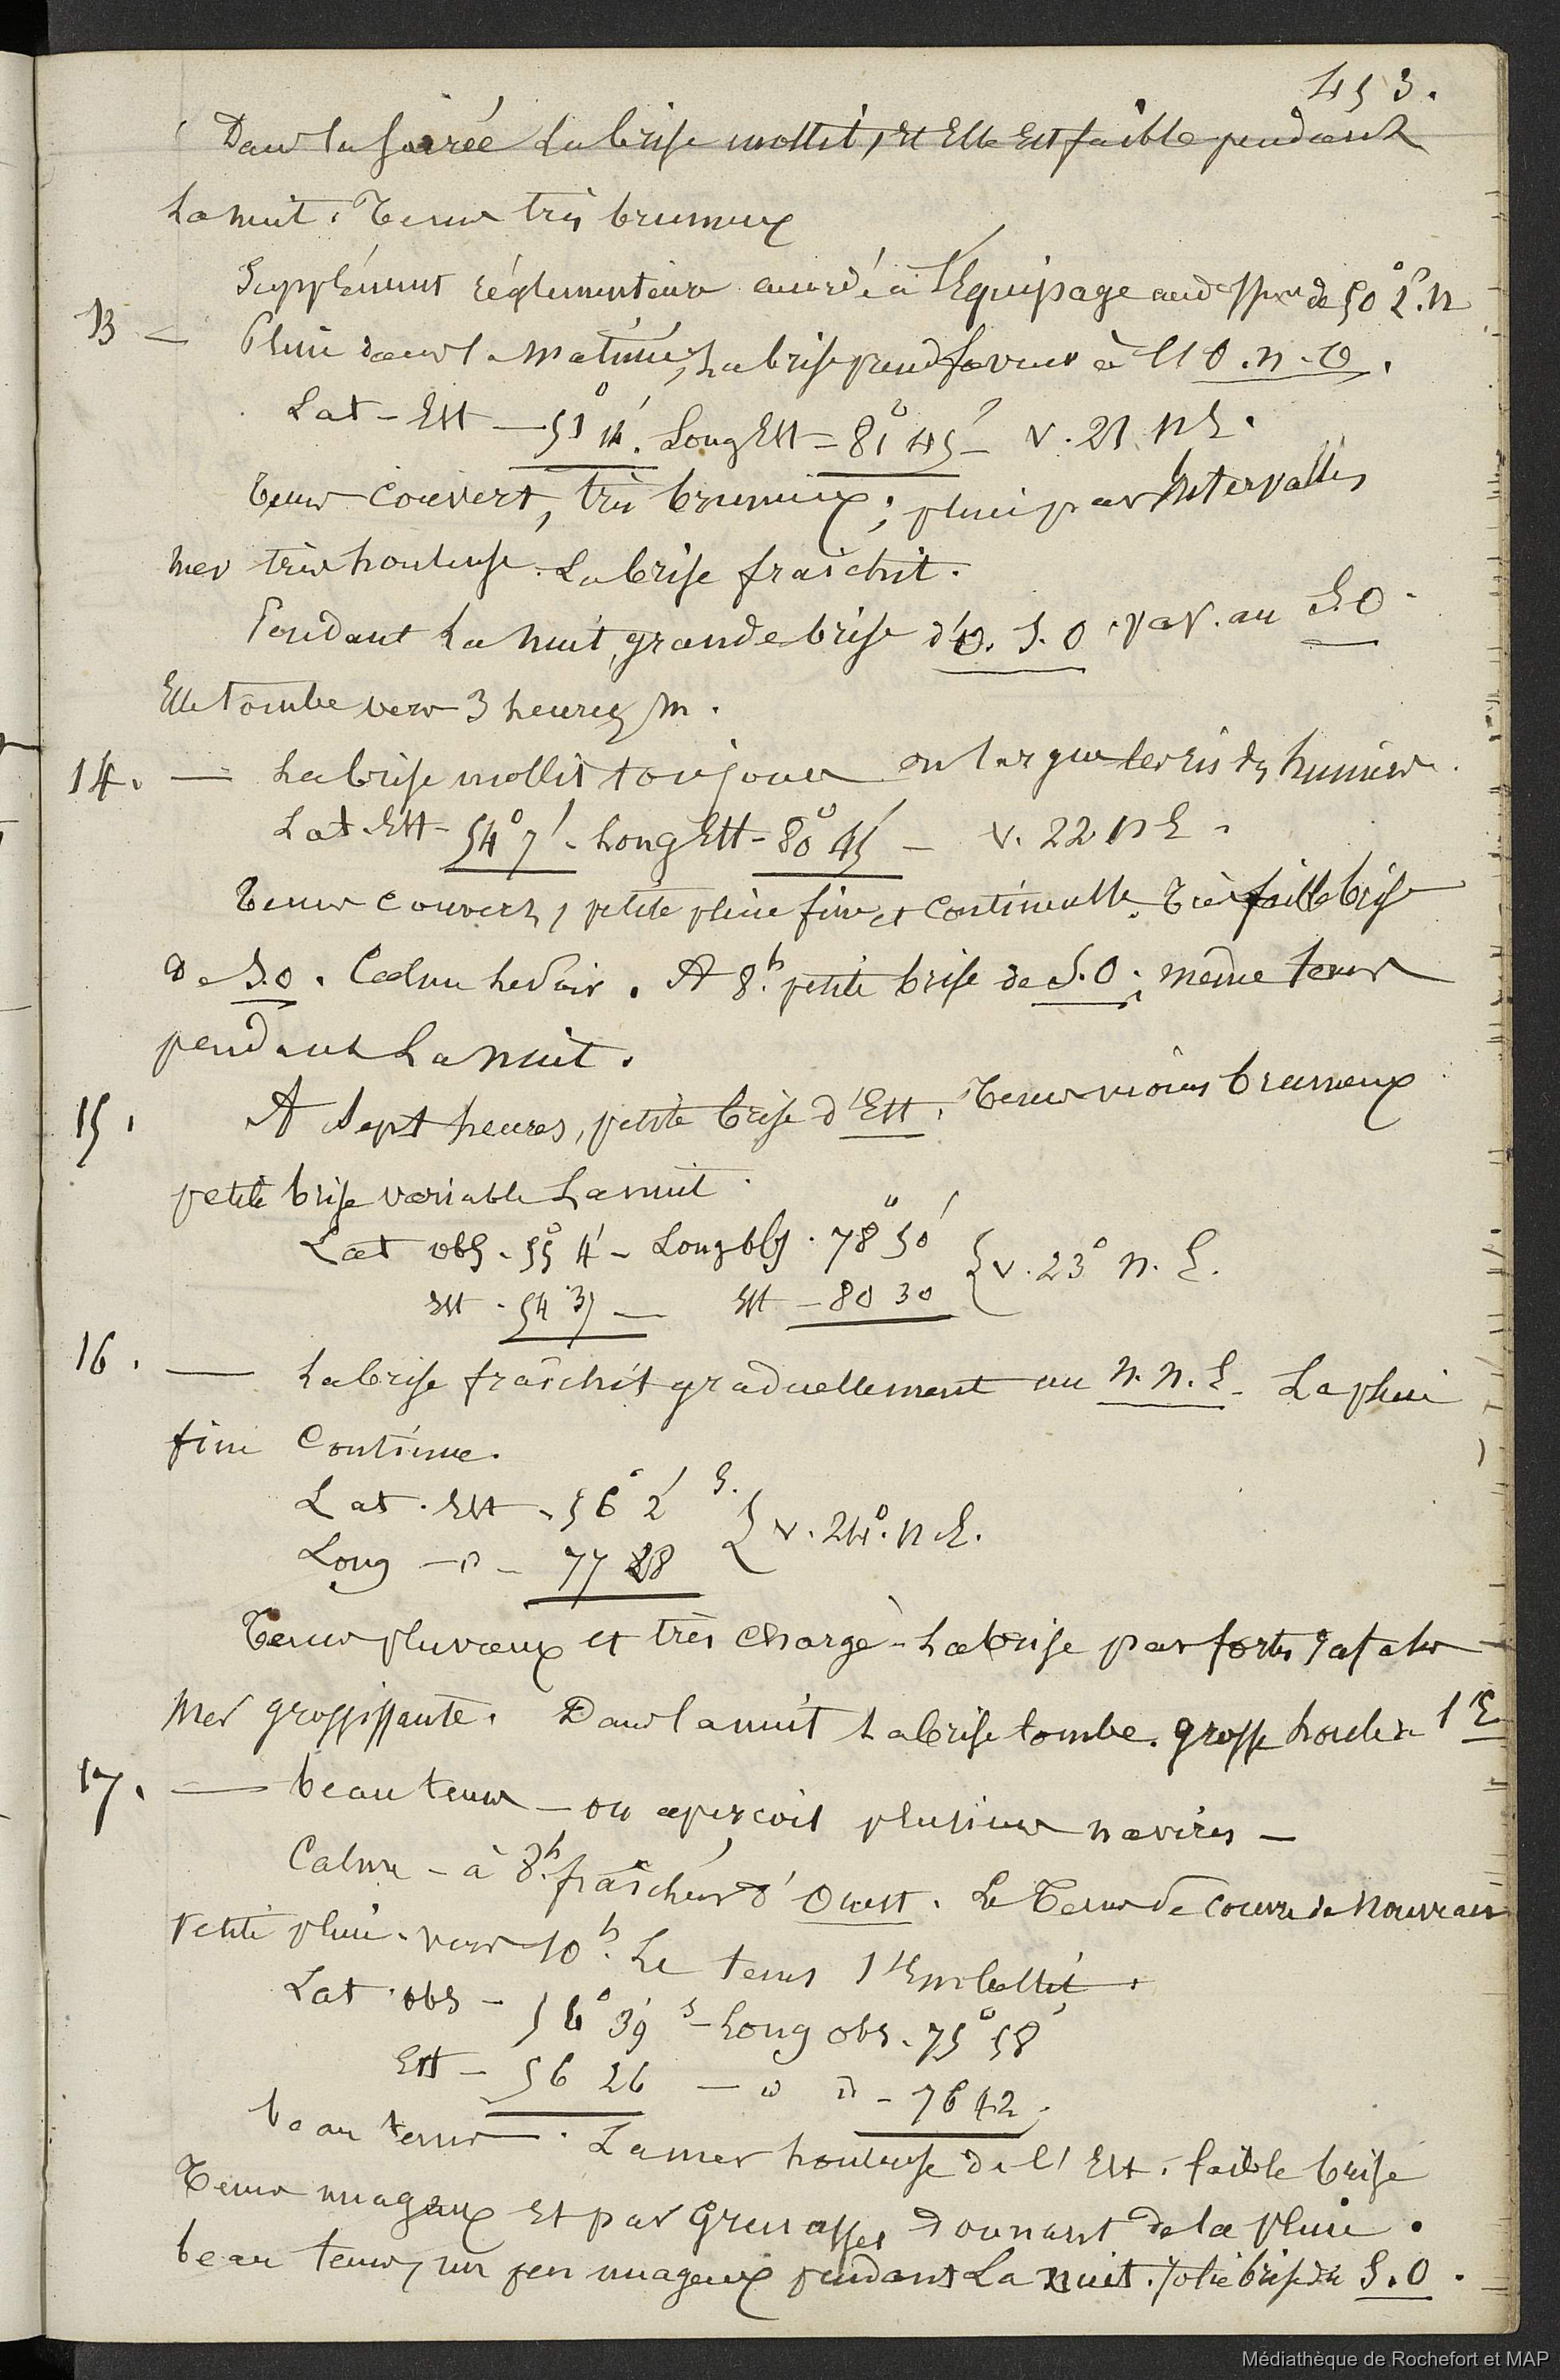 453.
Dans la soirée la brise mollit, et Elle est faible pendant
la nuit. Tems très brumeux
Supplément réglementaire accordé à l'Equipage au de 50° 2' N
13 — Pluie dans la matinée, La brise prend faveur à l'O.N.O.
Lat - Est — 51° 14'. Long Est = 81° 45' — V. 21 N E.
Tems couvert, très brumeux ; pluie par Intervalles
mer très houleuse. La brise fraichit.
Pendant la nuit, grande brise d'O. S. O var. au S.O.
Elle tombe vers 3 heures m.
14. — La brise mollit toujours on largue les ris des huniers.
Lat. Est - 54° 7' - Long Est - 80° 45' — V. 22 N E.
Tems couvert, petite pluie fine et continuelle. Très faible brise
de S.O. Calme le soir. A 8h. petite brise de S.O. ; même tems
pendant La nuit.
15. A sept heures, petite brise d'Est. Tems moins brumeux
petite brise variable La nuit.
Lat obs. 55° 4' - Long obs. 78° 50' } V. 23° N. E.
Est. 54 37 — Est - 80 30
16. — La brise fraîchit graduellement au N. N. E. La pluie
fine Continue.
Lat. Est - 56° 2' S. } V. 24°. N E.
Long — d° - 77 28
Tems pluvieux et très chargé - La brise par fortes rafales
Mer grossissante. Dans la nuit La brise tombe. grosse houle de l'E
17. — beau tems — on aperçoit plusieurs navires —
Calme - à 8h. fraîcheur d'Ouest. Le Tems se couvre de nouveau
Petite pluie - vers 10h. Le tems s'Embellit.
Lat. obs - 56° 39' S - Long obs. 75° 58'
Est - 56 26 — " " - 76 42.
beau tems. La mer houleuse de l'Est. faible brise
Tems nuageux et par Grenasses donnant de la pluie.
beau tems, un peu nuageux pendant La nuit. Jolie brise du S.O.
Médiathèque de Rochefort et MAP